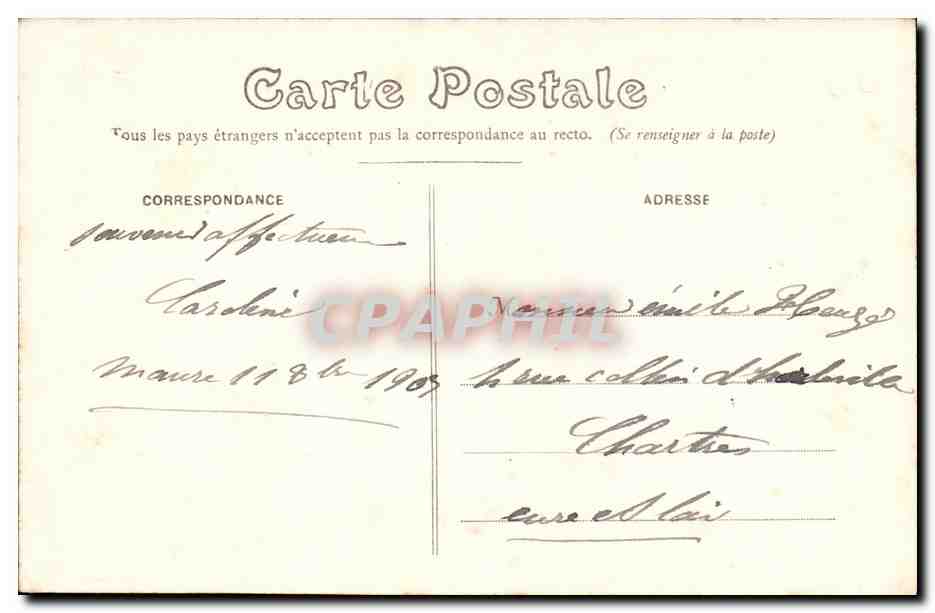 Carte Postale
Tous les pays étrangers n'acceptent pas la correspondance au recto. (Se renseigner à la poste)
CORRESPONDANCE
souvenir affectueux
Caroline
Maure 11 8bre 190
ADRESSE
Monsieur émile
rue collin d'harleville
Chartres
eure et loir
CPAPHIL